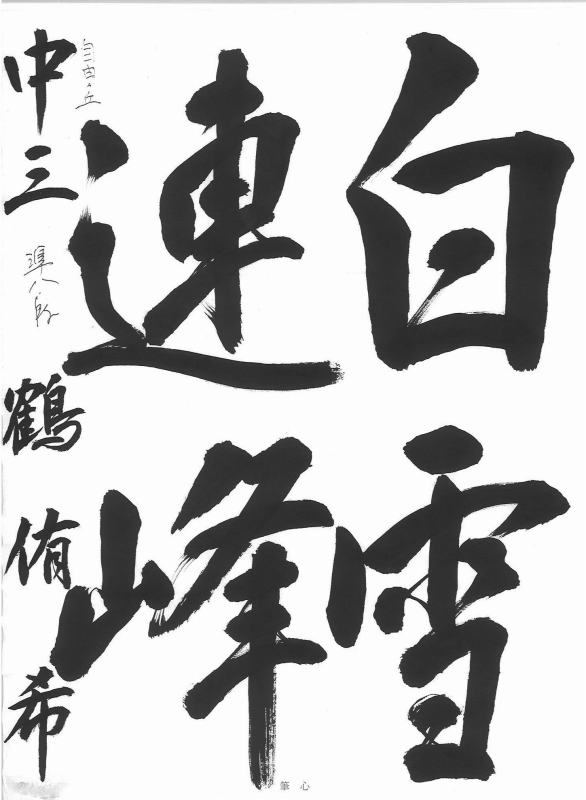 白雪
連峰
中三 鶴侑希
自由ヶ丘
準八段
心筆